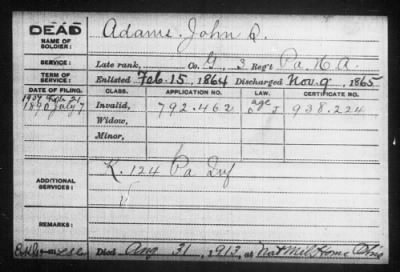 DEAD
NAME OF SOLDIER: Adams, John Q.
SERVICE: Late rank, Co. G, 3 Reg't Pa. H. A.
TERM OF SERVICE: Enlisted Feb. 15, 1864 Discharged Nov. 9, 1865
DATE OF FILING. CLASS. APPLICATION NO. LAW. CERTIFICATE NO.
1907 Feb. 21
1890 July 7 Invalid, 792.462 age 938.224
Widow,
Minor,
ADDITIONAL SERVICES: K. 124 Pa Inf
REMARKS:
Died Aug 31, 1913, at Nat Mil Home Ohio